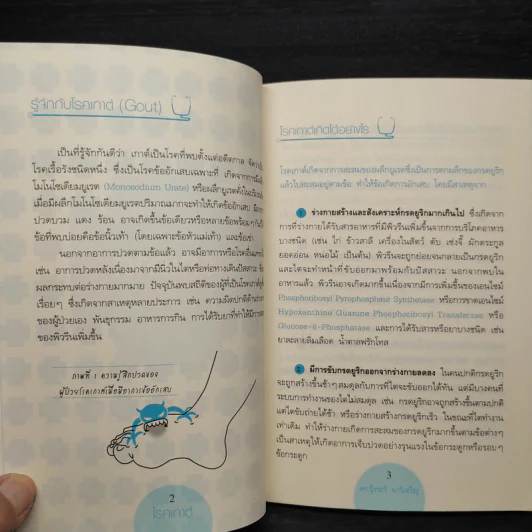 รู้จักกับโรคเกาต์ (Gout)
เป็นที่รู้จักกันดีว่า เกาต์เป็นโรคที่พบตั้งแต่อดีตกาล จัดว่าเป็น
โรคเรื้อรังชนิดหนึ่ง ซึ่งเป็นโรคข้ออักเสบเฉพาะที่ เกิดจากการมีผลึก
โมโนโซเดียมยูเรต (Monosodium Urate) หรือผลึกยูเรตคั่งในบริเวณ
เมื่อมีผลึกโมโนโซเดียมยูเรตปริมาณมากจะทำให้เกิดข้ออักเสบ มีอาการ
ปวดบวม แดง ร้อน อาจเกิดขึ้นข้อเดียวหรือหลายข้อพร้อมๆ กัน
ข้อที่พบบ่อยคือข้อนิ้วเท้า (โดยเฉพาะข้อหัวแม่เท้า) และข้อเข่า
นอกจากอาการปวดตามข้อแล้ว อาจมีอาการหรือโรคอื่น
เช่น อาการปวดหลังเนื่องมาจากมีนิ่วในไตหรือท่อทางเดินปัสสาวะ
ผลกระทบต่อร่างกายมากมาย ปัจจุบันพบสถิติของผู้ที่เป็นโรคเกาต์สูงขึ้น
เรื่อยๆ ซึ่งเกิดจากสาเหตุหลายประการ เช่น ความผิดปกติด้าน
ของผู้ป่วยเอง พันธุกรรม อาหารการกิน การได้รับยาที่ทำให้มีการ
ของพิวรีนเพิ่มขึ้น
ภาพที่ 1 ความรู้สึกปวดของ
ผู้ป่วยโรคเกาต์เมื่อมีอาการข้ออักเสบ
2
โรคเกาต์
โรคเกาต์เกิดได้อย่างไร
โรคเกาต์เกิดจากการสะสมของผลึกยูเรตซึ่งเป็นการตกผลึกของกรดยูริก
แล้วไปสะสมอยู่ตามข้อ ทำให้ข้อเกิดการอักเสบ โดยมีสาเหตุจาก
1 ร่างกายสร้างและสังเคราะห์กรดยูริกมากเกินไป ซึ่งเกิดจาก
การที่ร่างกายได้รับสารอาหารที่มีพิวรีนเพิ่มขึ้นจากการบริโภคอาหาร
บางชนิด (เช่น ไก่ ข้าวสาลี เครื่องในสัตว์ ตับ เซ่งจี๊ ผักตระกูล
ยอดอ่อน หน่อไม้ เป็นต้น) พิวรีนจะถูกย่อยจนกลายเป็นกรดยูริก
และไตจะทำหน้าที่ขับออกมาพร้อมกับปัสสาวะ นอกจากพบใน
อาหารแล้ว พิวรีนอาจเกิดมากขึ้นเนื่องจากมีการเพิ่มขึ้นของเอนไซม์
Phosphoribosyl Pyrophosphate Synthetase หรือการขาดเอนไซม์
Hypoxanthine Guanine Phosphoribosyl Transferase หรือ
Glucose-6-Phosphatase และการได้รับสารหรือยาบางชนิด เช่น
ยาละลายลิ่มเลือด น้ำตาลฟรักโทส
2 มีการขับกรดยูริกออกจากร่างกายลดลง ในคนปกติกรดยูริก
จะถูกสร้างขึ้นช้าๆ สมดุลกับการที่ไตจะขับออกได้ทัน แต่มีบางคนที่
ระบบการทำงานของไตไม่สมดุล เช่น กรดยูริกอาจถูกสร้างขึ้นตามปกติ
แต่ไตขับถ่ายได้ช้า หรือร่างกายสร้างกรดยูริกเร็ว ในขณะที่ไตทำงาน
เท่าเดิม ทำให้ร่างกายเกิดการสะสมของกรดยูริกมากขึ้นตามข้อต่างๆ
เป็นสาเหตุให้เกิดอาการเจ็บปวดอย่างรุนแรงในข้อกระดูกหรือรอบๆ
ข้อกระดูก
3